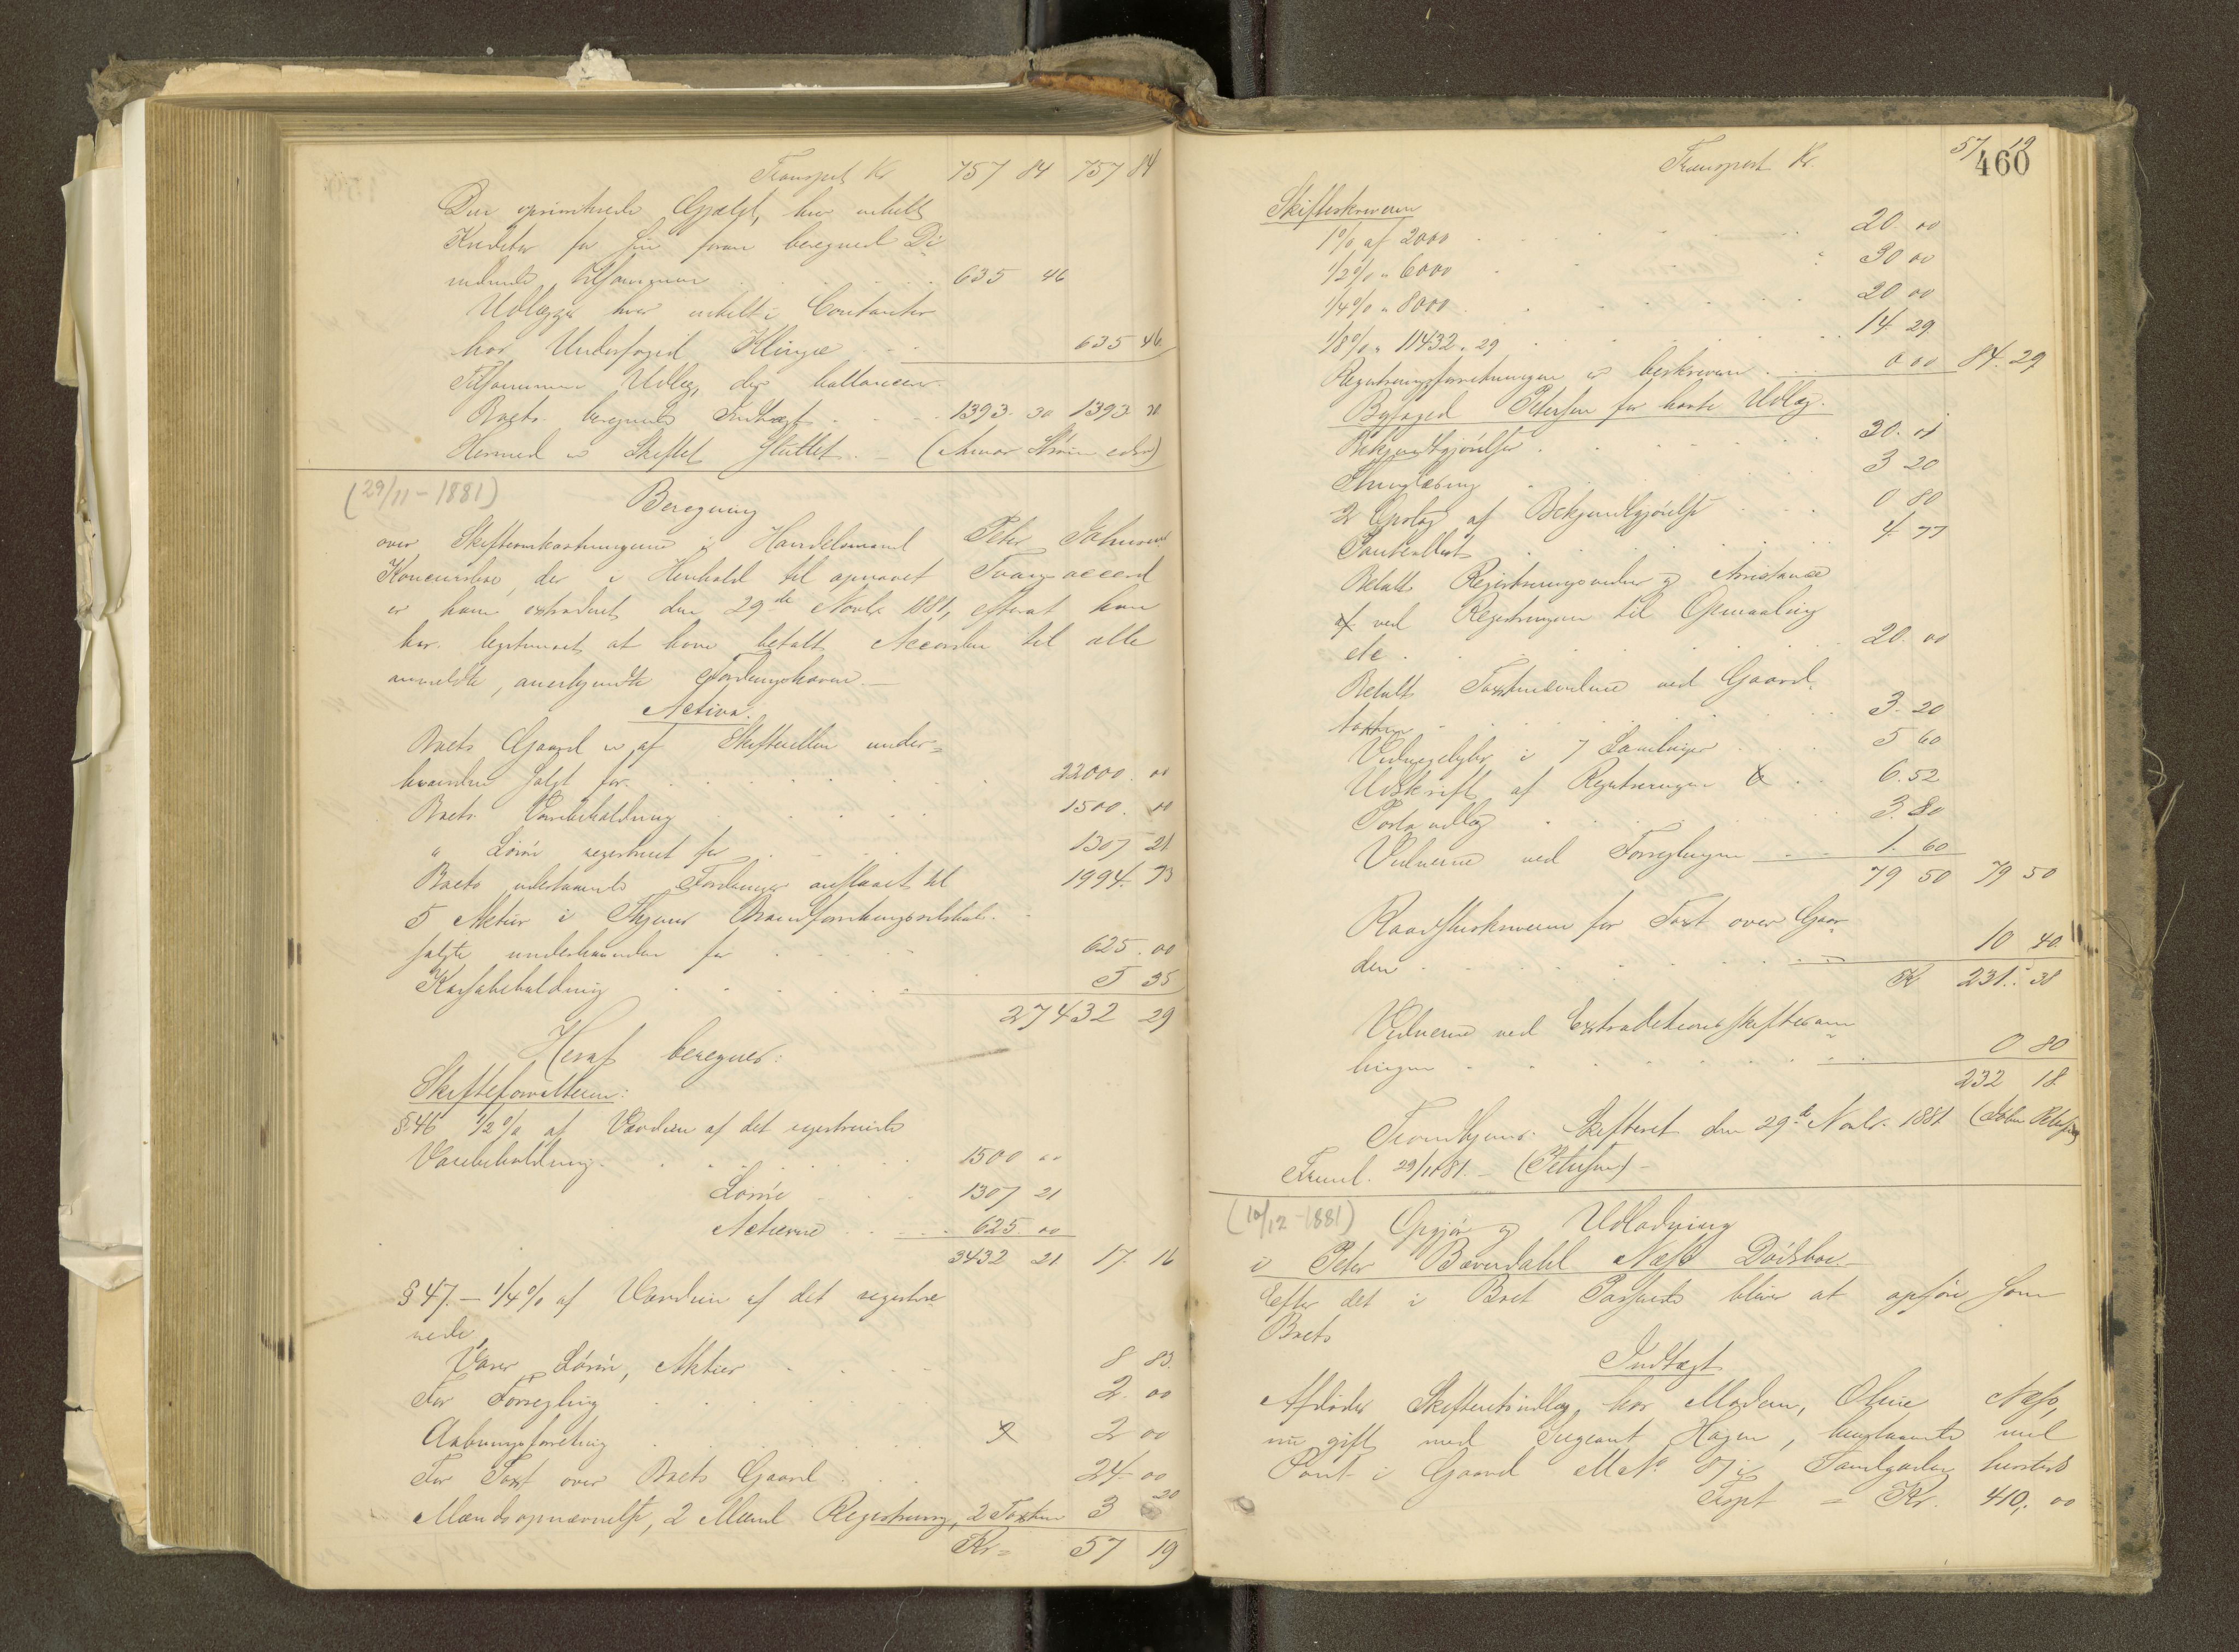 Transport Kr 757 84 757 84
Den uprioriterede Gjæld, hver enkelt
Kreditor for sin foran beregnede Di-
vidende, tilsammen 635 46
Udlægges hver enkelt i Contanter
hos Underfoged Klingre 635 46
Tilsammen Udlæg, der ballancerer
Boets beregnede Indtægt 1393. 30 1393 30
Hermed er Skiftet sluttet. –
(29/11 – 1881)
Beregning
over Skifteomkostningerne i Handelsmand Peter Johnsens
Koncursbo, der i Henhold til opnaaet Tvangsaccord
er ham extraderet den 29de Novbr 1881, efterat han
har legitimeret at have betalt Accorden til alle
anmeldte, anerkjendte Fordringshavere. –
Activa.
Boets Gaard er af Skifteretten under-
haanden solgt for 22000. 00
Boets Varebeholdning 1500. 00
" Løsøre registreret for 1307 21
Boets udestaaende Fordringer anslaaet til 1994. 73
5 Aktier i Thjems Brandforsikringsselskab
solgte underhaanden for 625. 00
Kassabeholdning 5 35
27432 29
Heraf beregnes:
Skifteforvalteren:
§ 46 1/2 % af Værdien af det registrerede
Varebeholdning 1500 00
Løsøre 1307 21
Actierne 625. 00
3432 21 17. 16
§ 47. – 1/4 % af Værdien af det registre-
rede,
Varer, Løsøre, Aktier 8 83.
For Forsegling 2. 00
Aabningsforretning 2 00
For Taxt over Boets Gaard 24. 00
Mændsopnævnelse, 2 Mænd Registrering, 2 Taxten 3 20
Kr = 57 19
460
Transport Kr. 57 19
Skifteskriveren
1 % af 2000 20. 00
1/2 % " 6000 30 00
1/4 % " 8000 20 00
1/8 % " 11432. 29 14 29.
Registreringsforretningen er beskreven 0 00 84. 29
Byfoged Petersen for havte Udlæg.
Bekjendtgjørelser 30. 01
Thinglæsning 3 20
2 Opslag af Bekjendtgjørelse 0 80
Panteattest 4. 77
Betalt Registreringsvidner og Assistance
ved Registreringen til Opmaaling
etc. 20. 00
Betalt Taxtmændene ved Gaard-
taxten 3. 20
Vidnegebyhr i 7 Samlinger 5 60
Udskrift af Registreringen 6. 52
Portoudlæg 3. 80
Vidnerne ved Forseglingen 1. 60
79 50 79 50
Raadstueskriveren for Taxt over Gaar-
den 10 40.
Kr 231. 38
Vidnerne ved Extraditionsskiftesam-
lingen 0 80
232 18.
Trondhjems Skifteret den 29de Novbr. 1881
Freml. 29/11 81. – (Petersen) –
(10/12 – 1881)
Opgjør og Udlodning
i Peter Bæverdahl Næss Dødsbo. –
Efter det i Boet Passerede bliver at opføre som
Boets
Indtægt
Afdødes Skifteretsudlæg, hos Moderen, Oline Næss,
nu gift med Sergeant Hagen, henstaaende med
Pant i Gaard Mat No. 87 i Sandgaden hersteds
Trspt = Kr. 410. 00